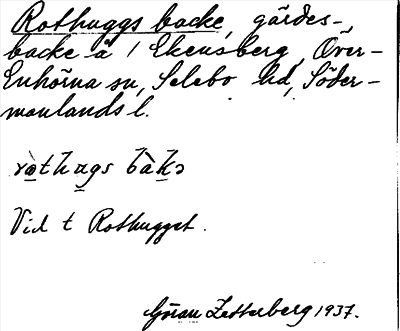 Rothuggs backe, gärdes-
backe å 1 Ekensberg, Över-
Enhörna sn, Selebo hd, Söder-
manlands l.
ròthags bàkə
Vid t Rothugget.
Göran Zetterberg 1937.